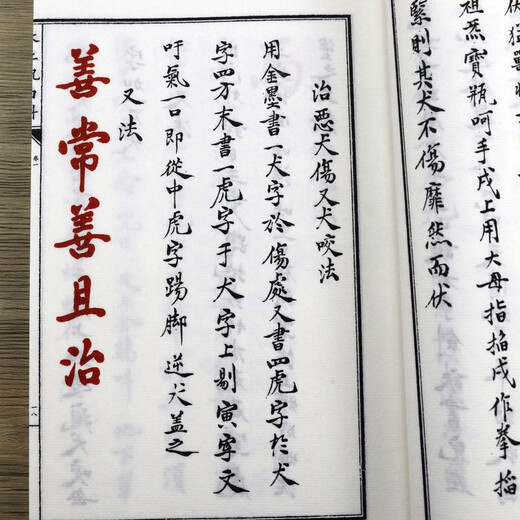 伏猛獸
祖炁寶瓶呵手戌上用大母指掐戌作拳掐
緊則其犬不傷靡然而伏
治惡犬傷又犬咬法
用金墨書一犬字於傷處又書四虎字於犬
字四方末書一虎字于犬字上剔寅字文
吁氣一口即從中虎字踢脚逆犬蓋之
又法
善常善且治